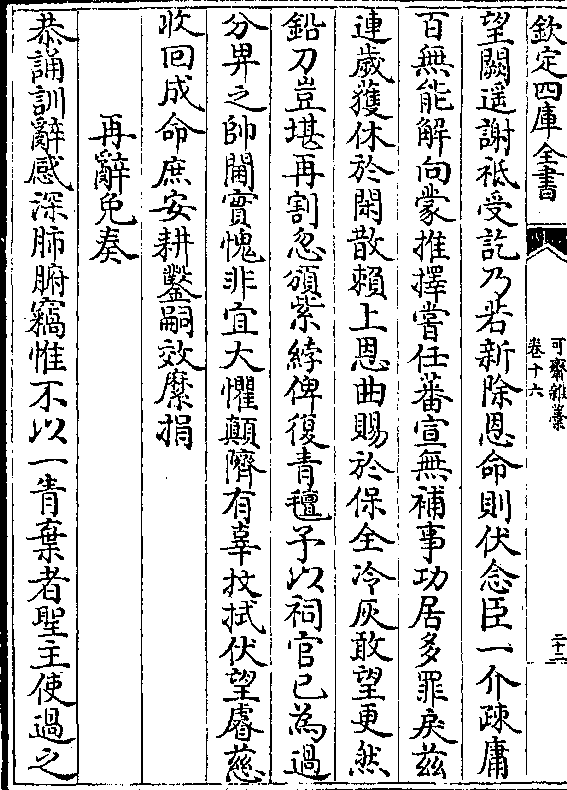 欽定四庫全書
可齋雜藁
卷十六
二十二
望闕遥謝祗受訖乃若新除恩命則伏念臣一介疎庸
百無能解向蒙推擇嘗任蕃宣無補事功居多罪戾兹
連歲獲休於閑散賴上恩曲賜於保全冷灰敢望更然
鉛刀豈堪再割忽頒紫綍俾復青氊予以祠官已為過
分畀之帥閫實愧非宜大懼顛隮有辜抆拭伏望睿慈
收回成命庶安耕鑿嗣效糜捐
再辭免奏
恭誦訓辭感深肺腑竊惟不以一眚棄者聖主使過之